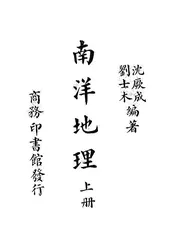 沈厥成
劉士木
編著
南洋地理
上册
商務印書館發行